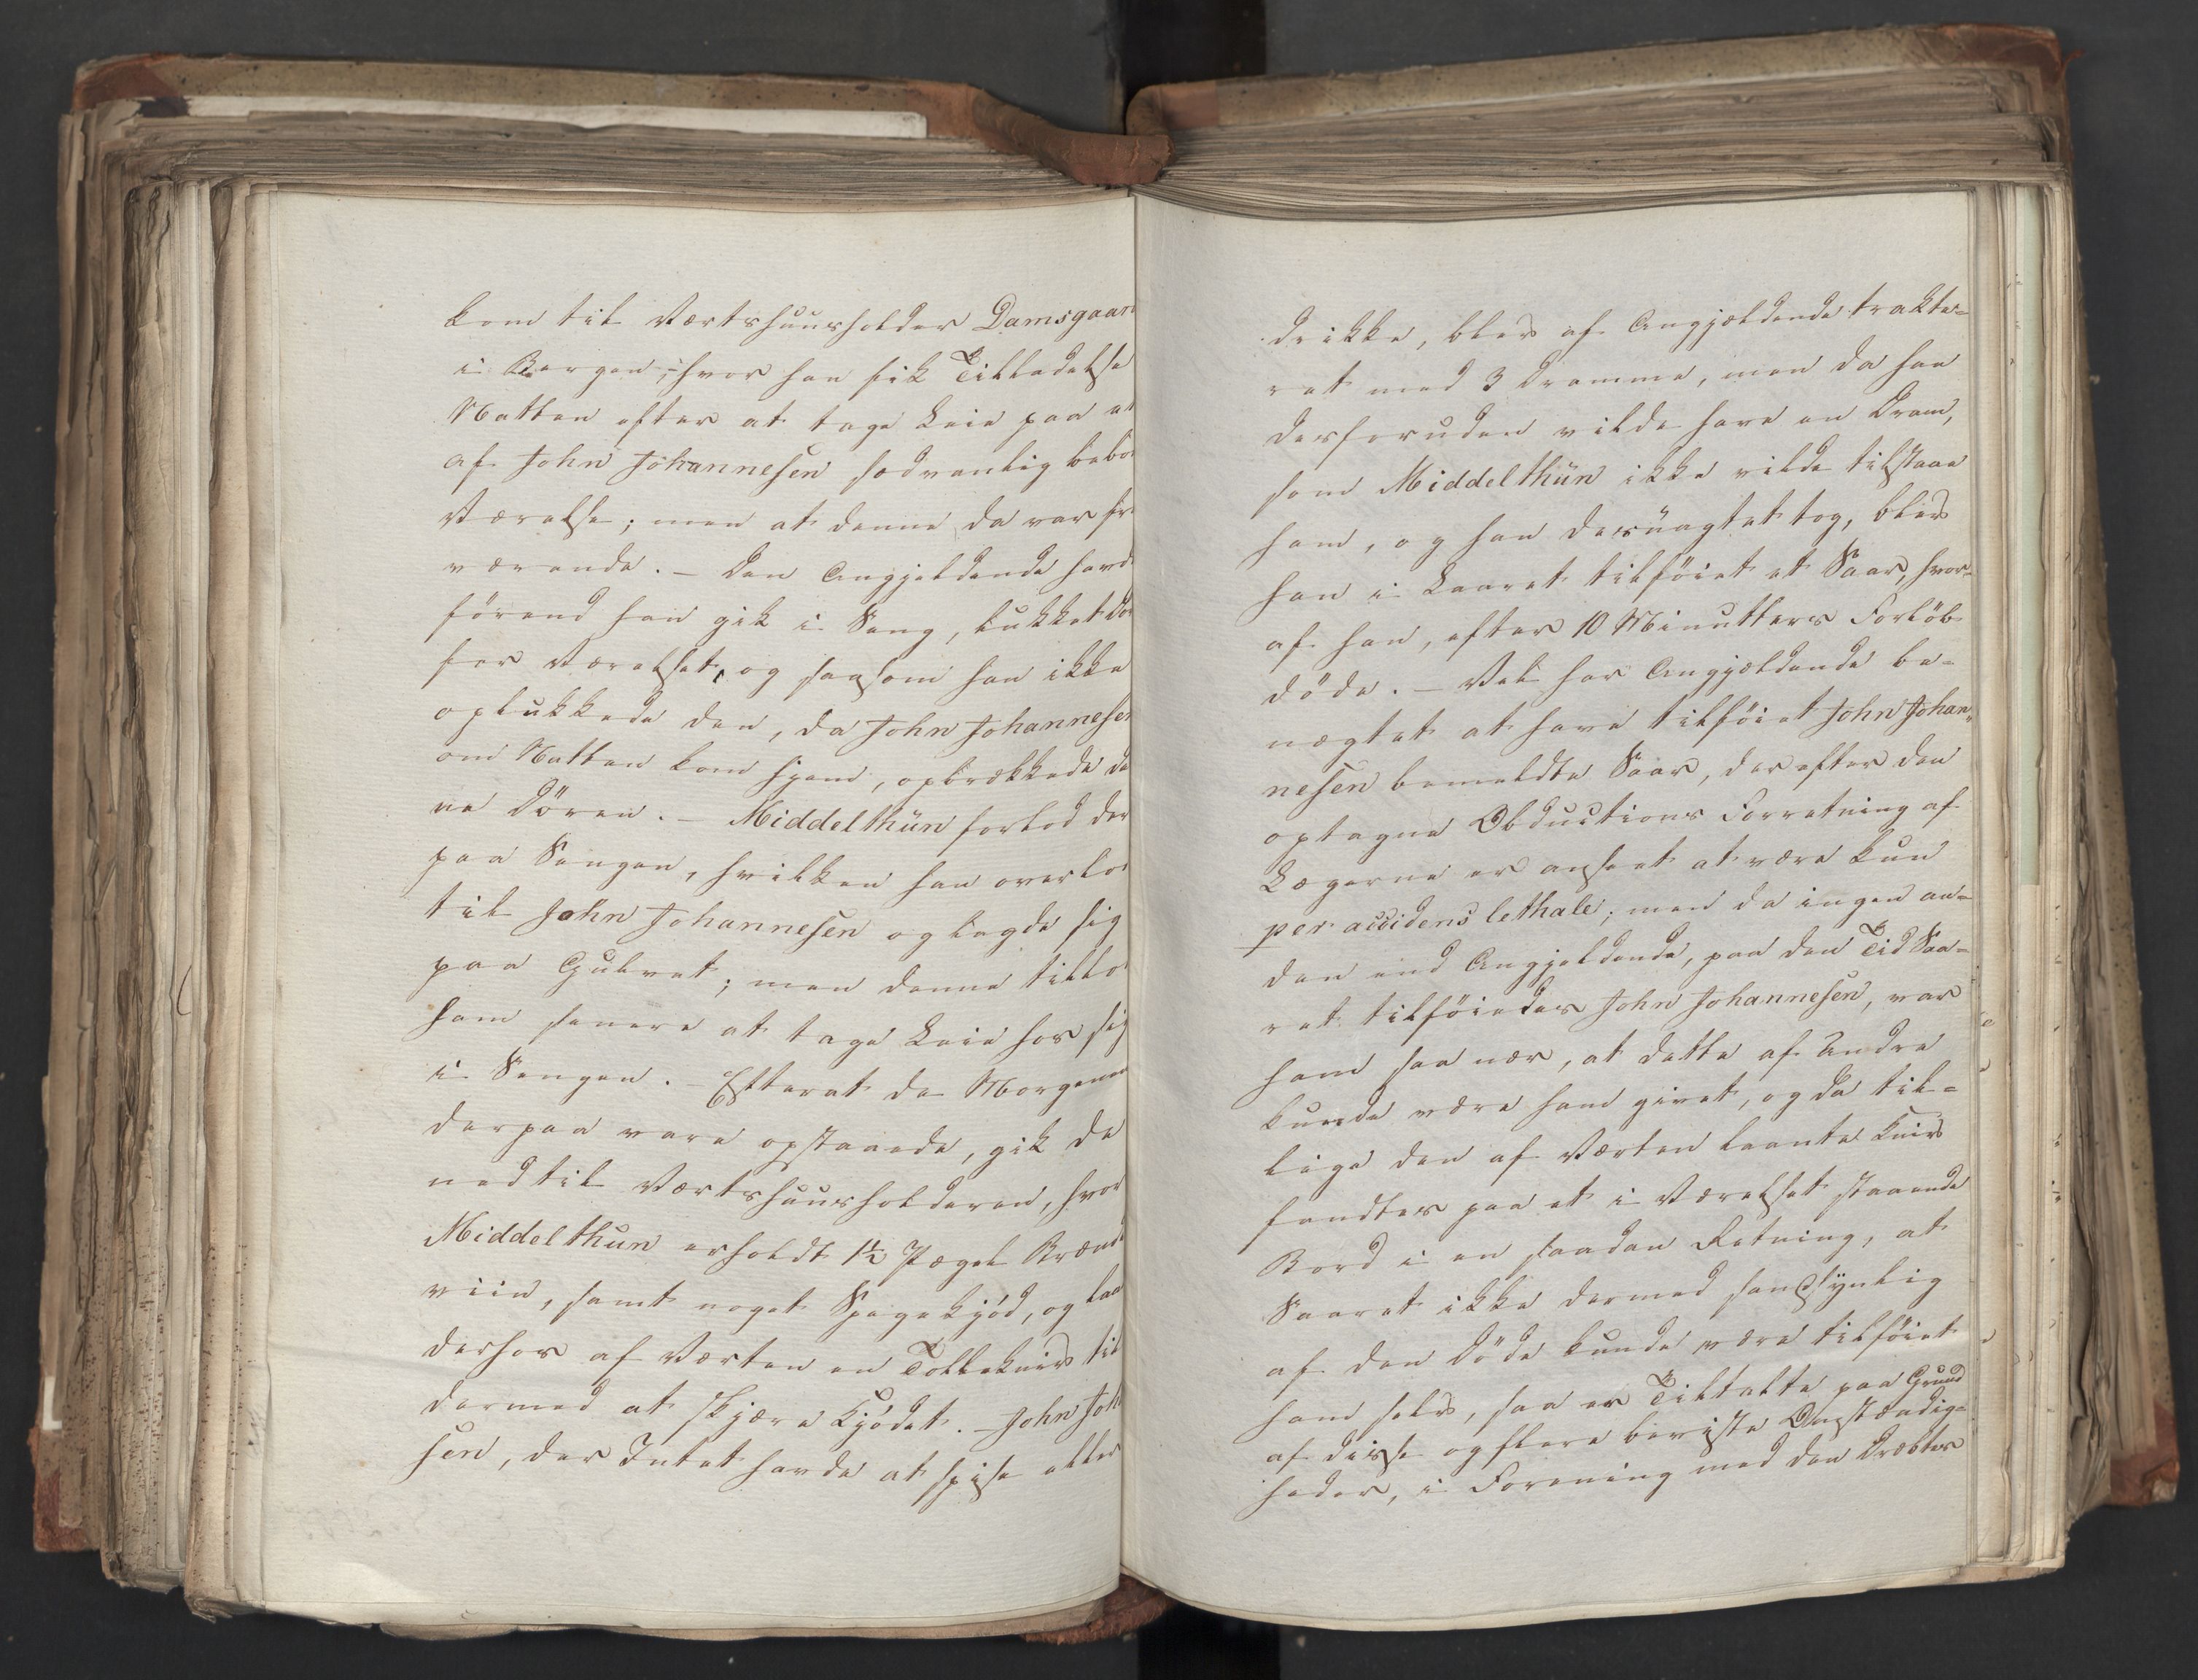 kom til Værtshuusholder Damsgaar
i Bergen, hvor han fik Tilladelse
Natten efter at tage Leie paa et
af John Johannesen sædvanlig bebo
Værelse; men at denne da var fra
værende. – Den Angjeldende havd
förend han gik i Seng, lukket Dø
for Værelset, og saasom han ikke
oplukkede den, da John Johannesen
om Natten kom hjem, opbrækkede de
ne Dören. – Middelthün forlod der
paa Sengen, hvilken han overlod
til John Johannesen og lagde sig
paa Gulvet; men denne tillod
ham senere at tage Leie hos sig
i Sengen. – Efterat de Morgenen
derpaa vare opstaaede, gik de
ned til Værtshuusholderen, hvor
Middelthun erholdt 1½ Pægel Brænde
viin, samt noget Spegekjöd, og laa
derhos af Værten en Tolleknivs til
dermed at skjære Kjödet. – John Joh
sen, der Intet havde at spise eller
drikke, blev af Angjældende trakte-
ret med 3 Dramme, men da han
desforuden vilde have en Dram,
som Middelthün ikke vilde tilstaae
ham, og han desüagtet tog, blev
han i Laaret tilföiet et Saar, hvor-
af han, efter 10 Minutters Forlöb
döde. – Vel har Angjældende be-
nægtet at have tilföiet John Johan-
nesen bemeldte Saar, der efter den
optagne Obductions Forretning af
Lægerne er anseet at være kun
per accidens lethale; men da ingen an-
den end Angjeldende, paa den Tid Saa-
ret tilföiedes John Johannesen, var
ham saa nær, at dette af Andre
kunde være ham givet, og da til-
lige den af Værten laante Kniv
fandtes paa et i Værelset staaende
Bord i en saadan Retning, at
Saaret ikke dermed sandsynlig
af den Döde kunde være tilföiet
ham selv, saa er Tiltalte paa Grund
af disse og flere beviste Omstændig-
heder, i Forening med den Dræbtes